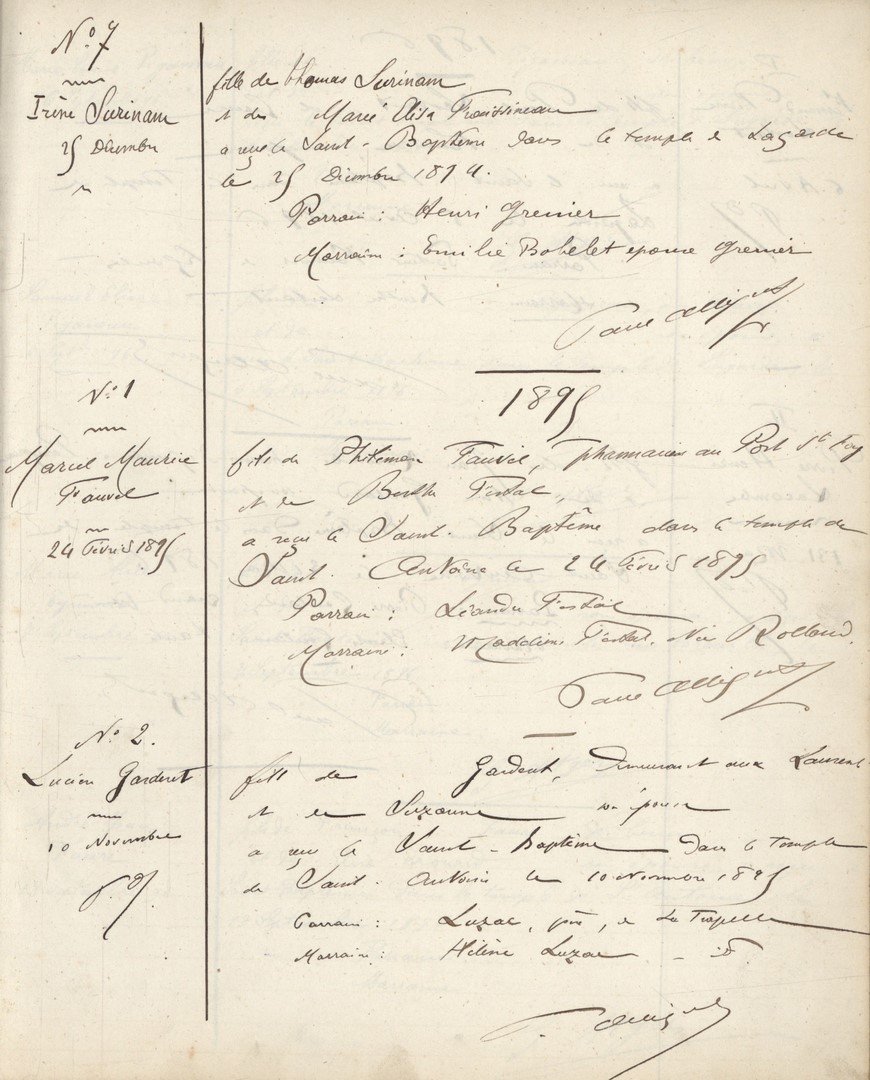 N° 7
Irène Surinam
25 Décembre
fille de Thomas Surinam
et de Marie Elisa
a reçu le Saint-Baptême dans le temple de Lagarde
le 25 Décembre 1894.
Parrain : Henri Grenier
Marraine : Emilie Bobelet epouse Grenier
Paul
1895
N° 1
Marcel Maurice
Fauvel
24 Février 1895
fils de Philémon Fauvel, pharmacien au Port Ste Foy
et de Berthe
a reçu le Saint-Baptême dans le temple de
Saint-Antoine le 24 Février 1895
Parrain : Léandre
Marraine : Née Rolland.
Paul
N° 2.
Lucien Garderet
10 Novembre
fils de Garderet, demeurant aux Laurent
et de Suzanne son épouse
a reçu le Saint-Baptême dans le temple
de Saint-Antoine le 10 Novembre 1895
Parrain : Luzac, père, de
Marraine : Hélène Luzac - id
P.